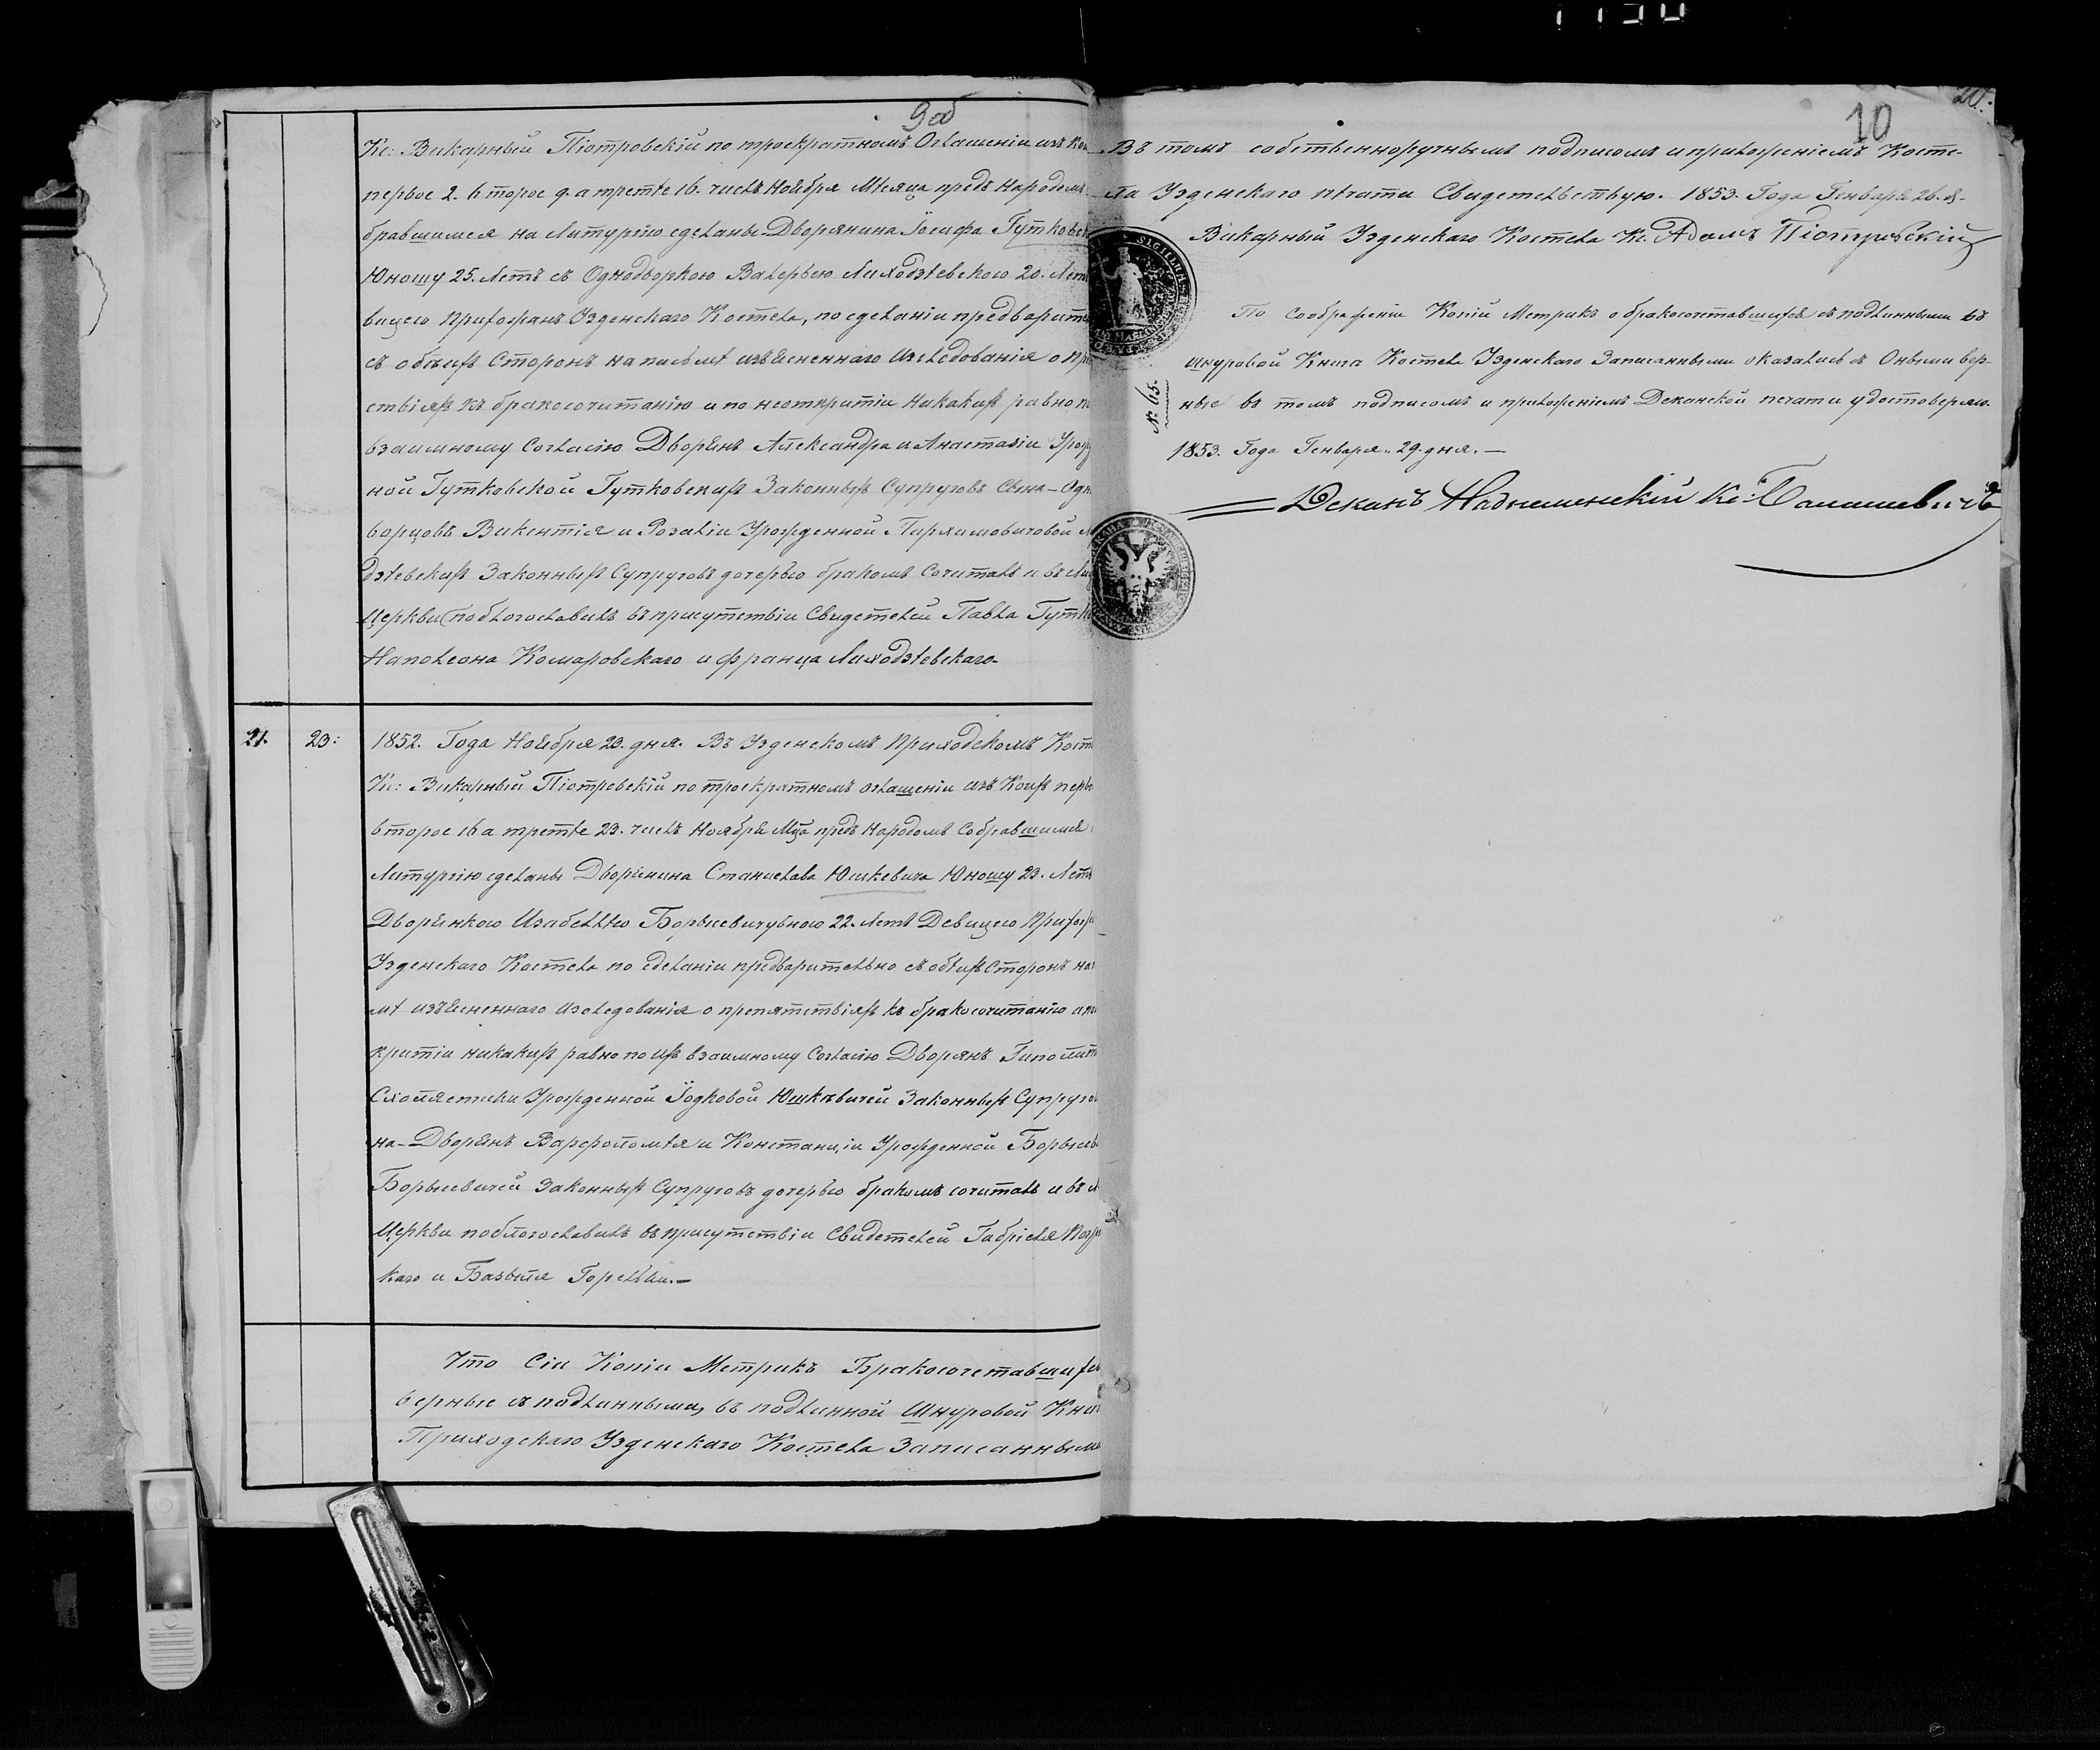 9об
Кс: Викарный Піотровскій по троекратномъ Оглашеніи изъ
первое 2. второе 9. а третѣе 16. числъ Ноября Мѣсяца предъ Народомъ
бравшимся на Литургію сдѣланы Дворянина Іосифа Гутковск
Юношу 25. Летъ съ Однодворкою Валерьею Лиходзѣевскою 20. Лет
вицею Прихожанъ Узденскаго Костела, по сделаніи предварите
съ обѣихъ Сторонъ на письмѣ изъясненнаго Изследованія о пре
ствіяхъ къ бракосочитанію и по неоткритіи Никакихъ равно по
взаимному Согласію Дворянъ Александра и Анастазіи Урож
ной Гутковской Гутковскихъ Законныхъ Супруговъ Сына – Одн
ворцовъ Викентія и Розаліи Урожденной Пархимовичовой
дзѣевскихъ Законныхъ Супруговъ дочерью бракомъ Сочиталъ и въ Лице
Церкви поблогославилъ въ присутствіи Свидетелей Павла Гутк
Наполеона Комаровскаго и Франца Лиходзѣевскаго.
21. 23: 1852. Года Ноября 23. дня. Въ Узденскомъ Приходскомъ Косте
Кс: Викарный Піотровскій по троекратномъ оглашеніи изъ Коихъ перво
второе 16 а третѣе 23. числъ Ноября Мца предъ Народомъ Собравшимся
Литургію сделаны Дворянина Станислава Юшкевича Юношу 23. Летъ
Дворянкою Изабеллѣю Борысевичувною 22. Летъ Девицею Прихож
Узденскаго Костела по сделаніи предварительно съ обѣихъ Сторонъ на
мѣ изъясненнаго изследованія о препятствіяхъ къ бракосочитанію и по
критіи никакихъ равно по ихъ взаимному Согласію Дворянъ Гиполит
Схолястики Урожденной Іодковой Юшкевичей Законныхъ Супругов
на – Дворянъ Варфоломѣя и Констанціи Урожденной Борысев
Борысевичей Законныхъ Супруговъ дочерью бракомъ сочиталъ и въ Л
Церкви поблогославилъ въ присутствіи Свидетелей Габріеля
каго и Базыля Горелки.–
Что Сіи Копіи Метрикъ Бракосочетавшихся
верные съ подлинными, въ подлинной Шнуровой Книг
Приходскаго Узденскаго Костела Записанными
20.
10
Въ томъ собственноручнымъ подписомъ и приложеніемъ Косте-
ла Узденскаго печати Свидетельствую. 1853. Года Генваря 26. д.
Викарный Узденскаго Костела Кс. Адамъ Піотровскій
По Соображеніи Копій Метрикъ о бракосочетавшихся съ подлинными въ
шнуровой Книги Костела Узденскаго Записанными оказались съ Оными вер-
ные въ томъ подписомъ и приложеніемъ Деканской печати удостоверяю.
№ 65.
1853. Года Генваря „ 29. дня. –
Деканъ Надніеменскій Кс: